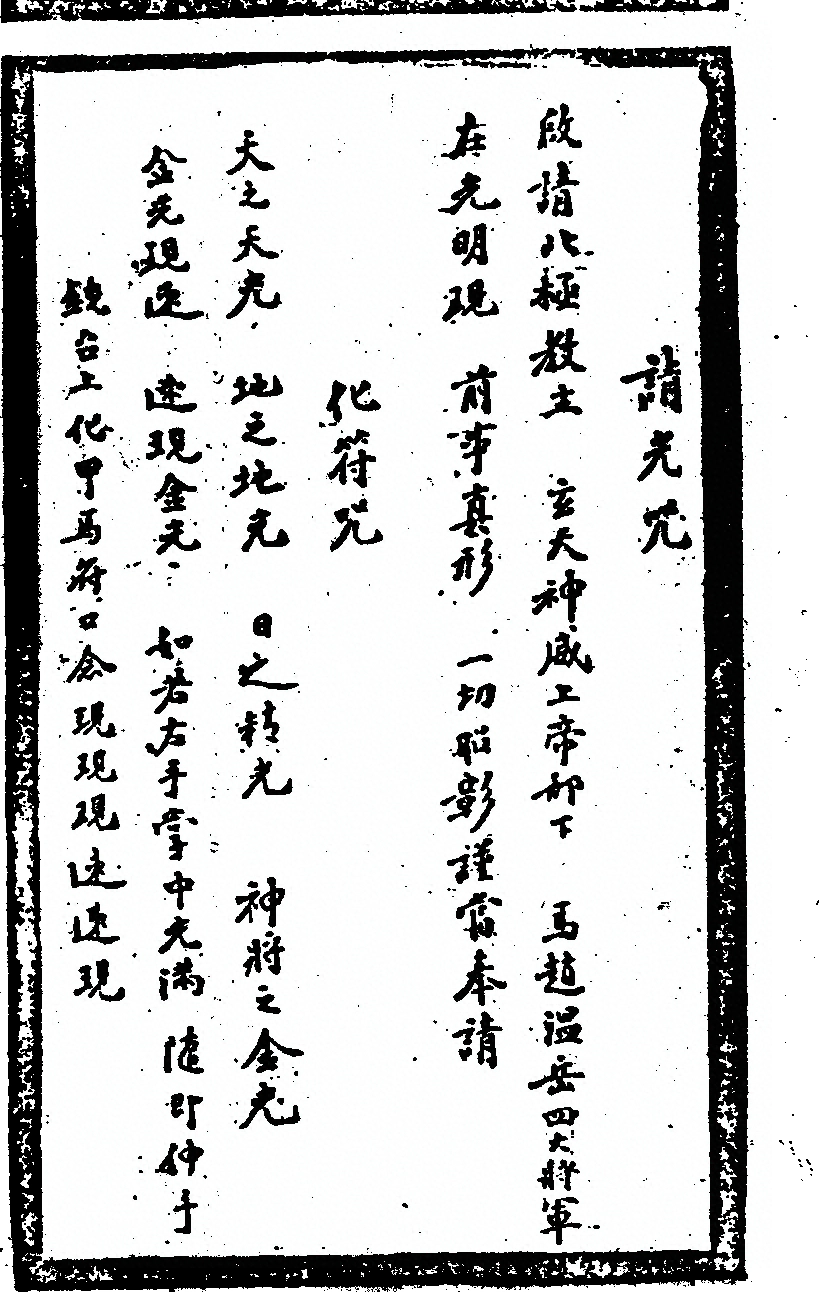 請光咒
啟請北極教主 玄天神威上帝部下 馬趙溫岳四大將軍
在光明現 前事真形 一切昭彰謹當奉請
化符咒
天之天光 地之地光 日之精光 神將之金光
金光現速 速現金光 如若左手掌中光滿 隨即仲手
鏡台上化甲馬符口念現現現速速現